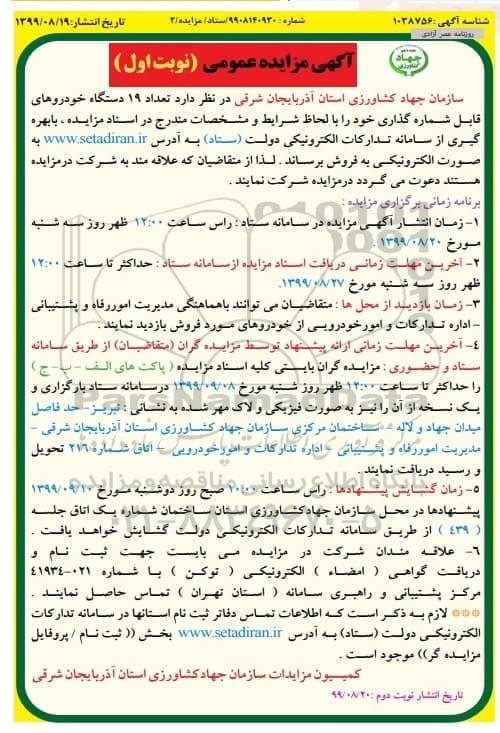 شناسه آگهی :۱۰۳۸۷۵۶
شماره : ۹۹۰۸۱۴۰۹۳۰/ستاد/ مزایده/۲
تاریخ انتشار:۱۳۹۹/۰۸/۱۹
روزنامه عصر آزادی
جهاد
کشاورزی
آگهی مزایده عمومی (نوبت اول)
سازمان جهاد کشاورزی استان آذربایجان شرقی در نظر دارد تعداد ۱۹ دستگاه خودروهای
قابل شماره گذاری خود را با لحاظ شرایط و مشخصات مندرج در اسناد مزایده ، بابهره
گیری از سامانه تدارکات الکترونیکی دولت (ستاد) به آدرس www.setadiran.ir به
صورت الکترونیکی به فروش برساند . لذا از متقاضیان که علاقه مند به شرکت درمزایده
هستند دعوت می گردد درمزایده شرکت نمایند .
برنامه زمانی برگزاری مزایده :
۱- زمان انتشار آگهی مزایده در سامانه ستاد : راس ساعت ۱۲:۰۰ ظهر روز سه شنبه
مورخ ۱۳۹۹/۰۸/۲۰ .
۲- آخرین مهلت زمانی دریافت اسناد مزایده ازسامانه ستاد : حداکثر تا ساعت ۱۲:۰۰
ظهر روز سه شنبه مورخ ۱۳۹۹/۰۸/۲۷.
۳- زمان بازدید از محل ها : متقاضیان می توانند باهماهنگی مدیریت اموررفاه و پشتیبانی
- اداره تدارکات و امورخودرویی از خودروهای مورد فروش بازدید نمایند .
۴- آخرین مهلت زمانی ارائه پیشنهاد توسط مزایده گران (متقاضیان) از طریق سامانه
ستاد و حضوری : مزایده گران بایستی کلیه اسناد مزایده ( پاکت های الف - ب - ج )
را حداکثر تا ساعت ۱۲:۰۰ ظهر روز شنبه مورخ ۱۳۹۹/۰۹/۰۸ درسامانه ستاد بارگزاری و
یک نسخه از آن را نیز به صورت فیزیکی و لاک مهر شده به نشانی : تبریز- حد فاصل
میدان جهاد و لاله - ساختمان مرکزی سازمان جهاد کشاورزی استان آذربایجان شرقی -
مدیریت اموررفاه و پشتیبانی - اداره تدارکات و امورخودرویی - اتاق شماره ۲۱۶ تحویل
و رسید دریافت نمایند .
۵- زمان گشایش پیشنهادها : راس ساعت ۱۰:۰۰ صبح روز دوشنبه مورخ ۱۳۹۹/۰۹/۱۰
پیشنهادها در محل سازمان جهادکشاورزی استان ساختمان شماره یک اتاق جلسه
( ۴۳۹ ) از طریق سامانه تدارکات الکترونیکی دولت گشایش خواهد یافت .
۶- علاقه مندان شرکت در مزایده می بایست جهت ثبت نام و
دریافت گواهی ( امضاء ) الکترونیکی ( توکن ) با شماره ۰۲۱-۴۱۹۳۴
مرکز پشتیبانی و راهبری سامانه ( استان تهران ) تماس حاصل نمایند .
*** لازم به ذکر است که اطلاعات تماس دفاتر ثبت نام استانها در سامانه تدارکات
الکترونیکی دولت (ستاد) به آدرس www.setadiran.ir بخش (( ثبت نام / پروفایل
مزایده گر)) موجود است .
کمیسیون مزایدات سازمان جهادکشاورزی استان آذربایجان شرقی
تاریخ انتشار نوبت دوم :۹۹/۰۸/۲۰
ParsNamadData
پایگاه اطلاع رسانی مناقصه و مزایده
۰۲۱-۸۸۳۴۹۶۷۰-۵